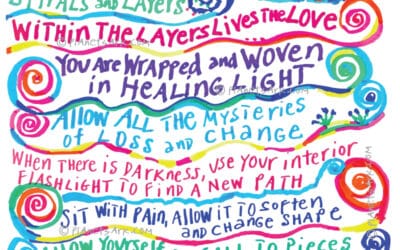 SPIRALS AND LAYERS
WITHIN THE LAYERS LIVES THE LOVE...
YOU ARE WRAPPED and WOVEN
in HEALING LIGHT
ALLOW ALL THE MYSTERIES
of LOSS and CHANGE
WHEN THERE IS DARKNESS, USE YOUR INTERIOR
FLASHLIGHT TO FIND A NEW PATH
SIT WITH PAIN, ALLOW IT TO SOFTEN
and CHANGE SHAPE
ALLOW YOURSELF TO FALL TO PIECES